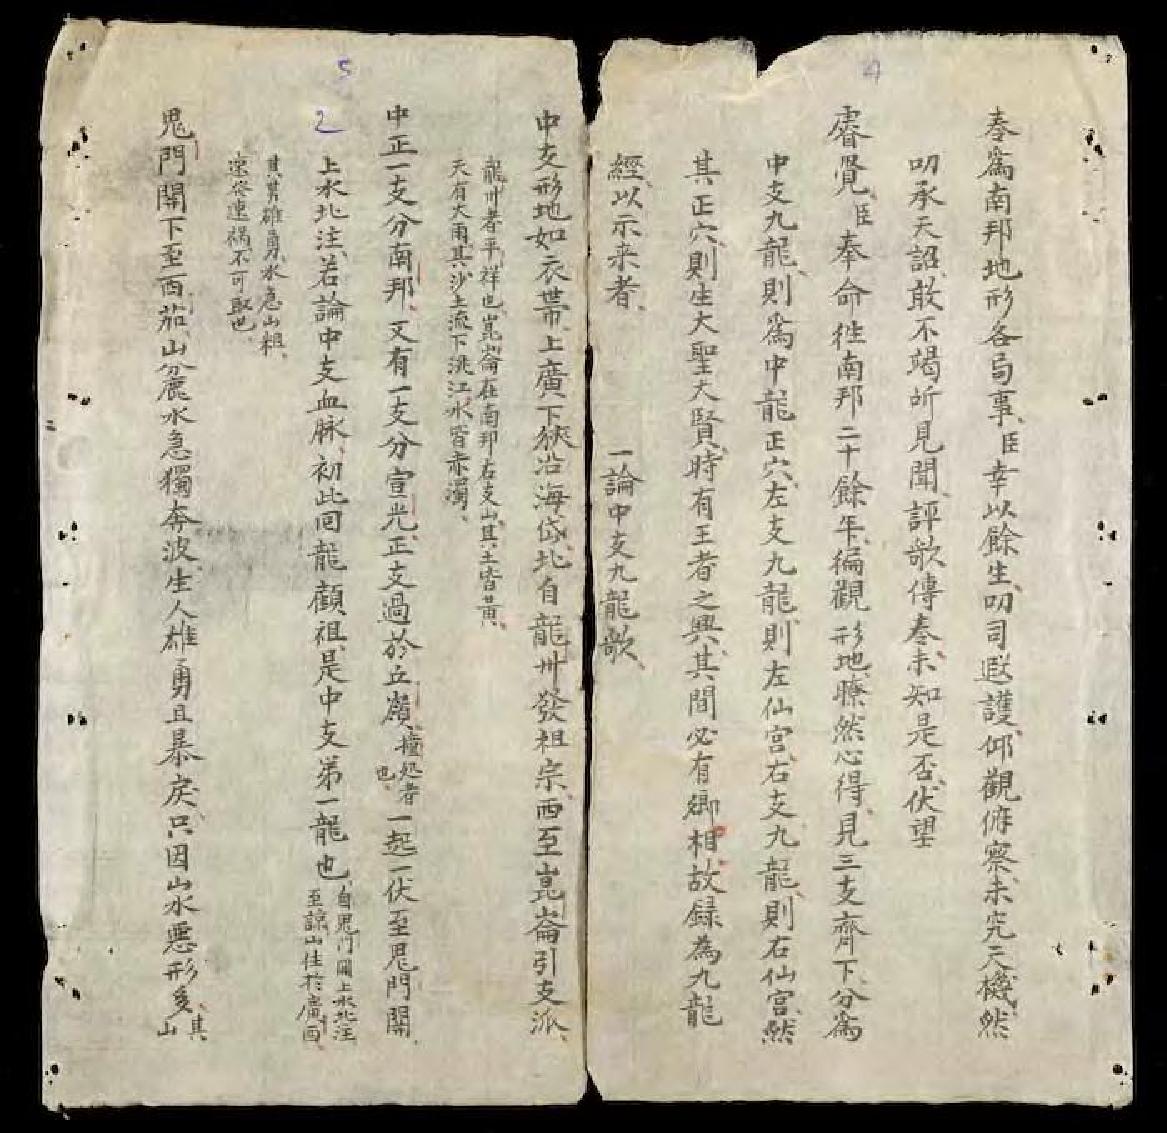 4
奏爲南邦地形各局事臣幸以餘生叨司遐護仰觀俯察未究天機然
叨承天詔敢不竭所見聞評歌傳奏未知是否伏望
睿覽臣奉命徃南邦二十餘年徧觀形地瞭然心得見三支齊下分爲
中支九龍則爲中龍正穴左支九龍則左仙宫右支九龍則右仙宫然
其正穴則生大聖大賢時有王者之興其間必有卿相故録為九龍
經以示来者 一論中支九龍歌
5
中支形地如衣帶上廣下狹沿海岱北自龍州發祖宗西至崑崙引支派
龍州者平祥也崑崙在南邦右支山其土皆黄
天有大雨其沙土流下洮江水皆赤濁
中正一支分南邦又有一支分宣光正支過於丘嶺撞処者也一起一伏至鬼門關
2
上水北注若論中支血脉初此回龍顧祖是中支第一龍也自鬼門関上水北注
至諒山住於廣西
其男雄勇水急山粗
速發速禍不可取也
鬼門關下至西茄山麄水急獨奔波生人雄勇且暴戾只因山水惡形多其
山